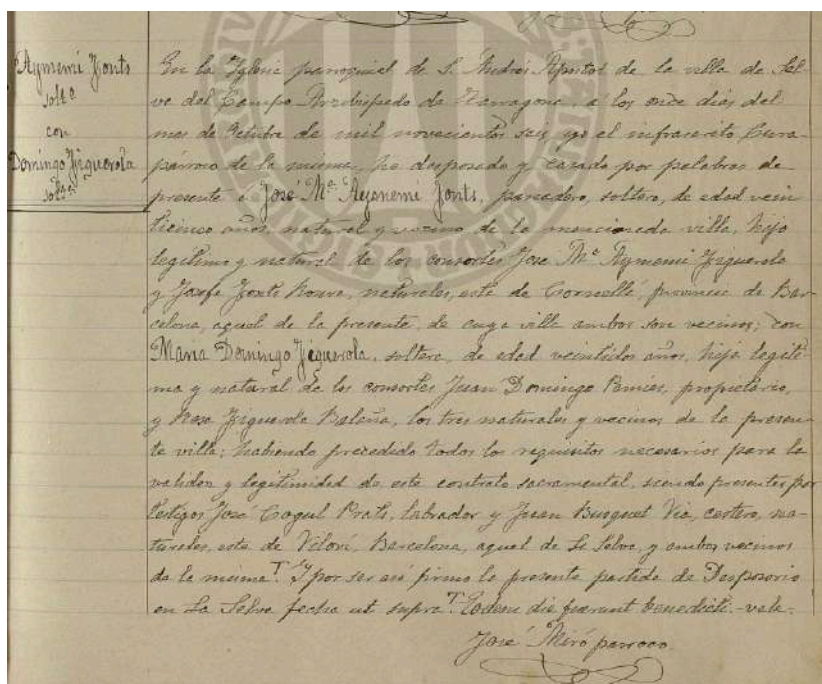 Aymemi Fonts
solt.o
con
Domingo Figuerola
solt.a
En la Iglesia parroquial de S. Andrés Apostol de la villa de Sel
va del Campo Arzobispado de Tarragona, a los once dias del
mes de Octubre de mil novecientos seis, yo el infrascrito Cura-
párroco de la misma, he desposado y casado por palabras de
presente á José M.a Aymemi Fonts, panadero, soltero, de edad vein
ticinco años, natural y vecino de la mencionada villa, hijo
legítimo y natural de los consortes José M.a Aymemi Figuerola
y Josefa Fonts Roure, naturales, esta de Cornellá, provincia de Bar-
celona, aquel de la presente, de cuya villa ambos son vecinos; con
Maria Domingo Figuerola, soltera, de edad veintidos años, hija legíti-
ma y natural de los consortes Juan Domingo Pamies, propietario,
y Rosa Figuerola Baleña, los tres naturales y vecinos de la presen-
te villa; habiendo precedido todos los requisitos necesarios para la
validez y legitimidad de este contrato sacramental, siendo presentes por
testigos José Cogul Prats, labrador y Juan Busquet Via, cestero, na-
turales, este de Viloví, Barcelona, aquel de La Selva, y ambos vecinos
de la misma. Y por ser así firmo la presente partida de Desposorio
en La Selva fecha ut supra. Eodem die fuerunt benedicti.-vale.
José Miró párroco